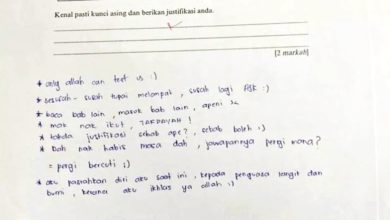 Kenal pasti kunci asing dan berikan justifikasi anda.
[2 markah]
* only allah can test us :)
* sesusah - susah tupai melompat , susah lagi fizik :)
* baca bab lain , masuk bab lain , apeni sc
* mak nak ikut , TAKPAYAH !
* takda justifikasi sebab ape? , sebab boleh :)
* Dah nak habis masa dah , jawapannya pergi mana?
= pergi bercuti ;)
* aku pasrahkan diri aku saat ini , kepada penguasa langit dan
bumi , kerana aku ikhlas ya allah :)